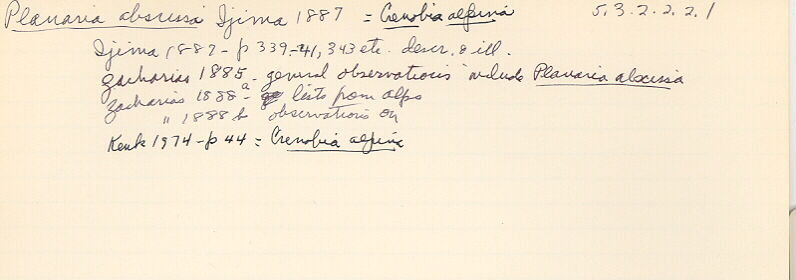 Planaria abscissa Ijima 1887 = Crenobia alpina 5.3.2.2.2.1
Ijima 1887 - p 339-41, 343 etc. descr. & ill.
Zacharias 1885 - general observations include Planaria abscissa
Zacharias 1888a - lists from alps
" 1888 b observations on
Kenk 1974 - p 44 = Crenobia alpina